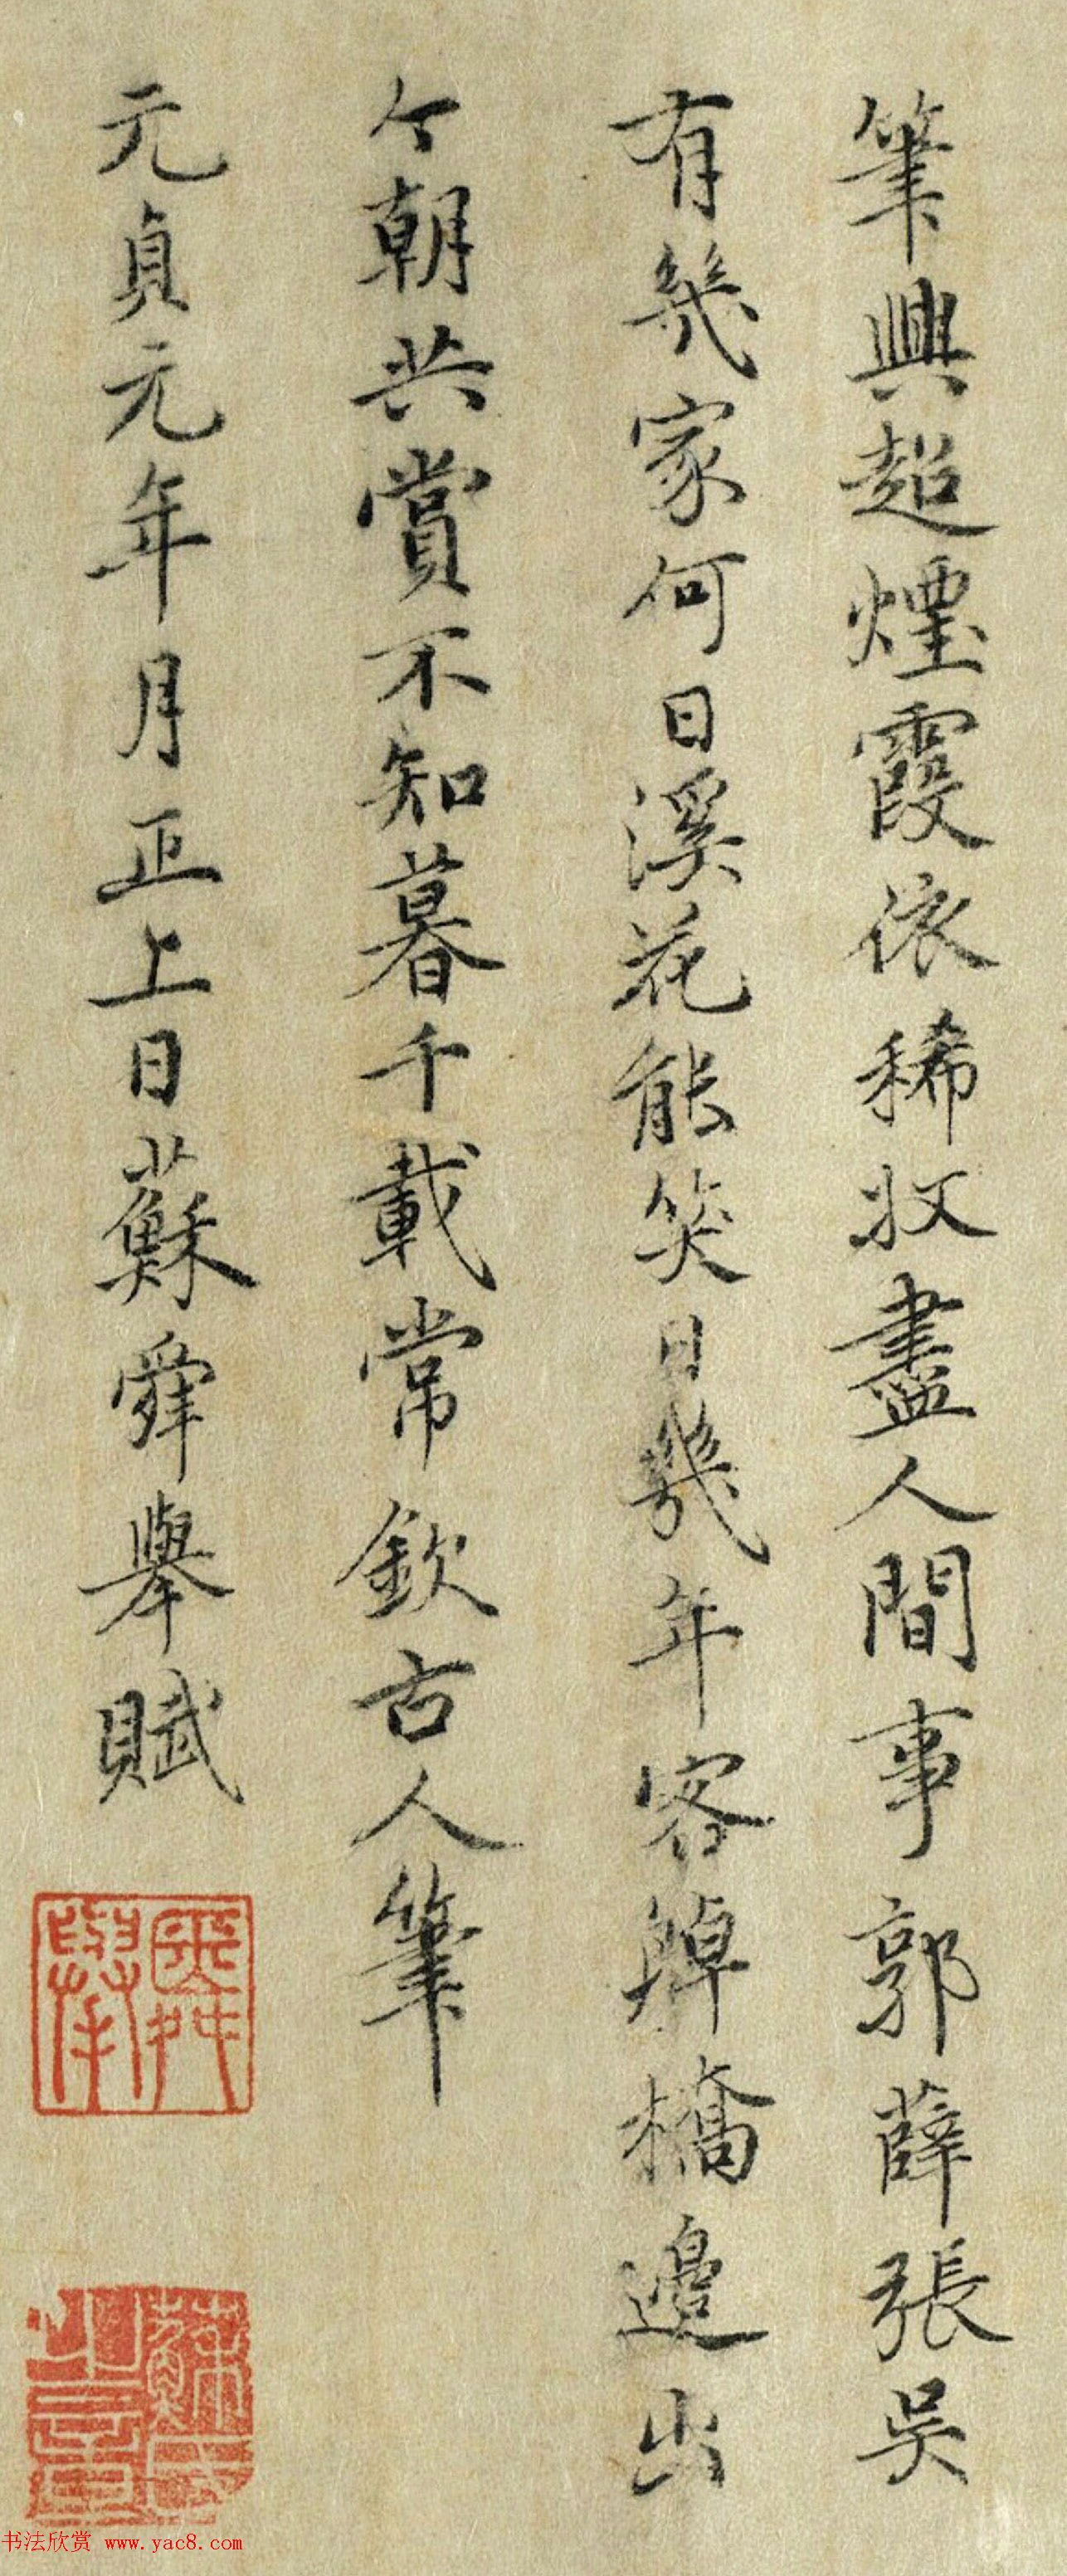 筆興超煙霞依稀収盡人間事郭薛張吳
有幾家何日溪花能笑日幾年客踔橋邊出
今朝共賞不知暮千載常欽古人筆
元貞元年月正上日蘇舜舉賦
舜舉
书法欣赏 www.yac8.com